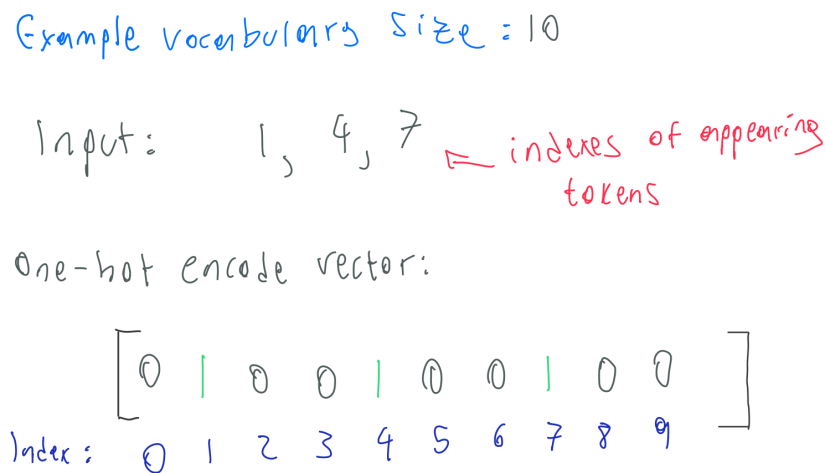 Example vocabulary size: 10
Input: 1, 4, 7 indexes of appearing
tokens
One-hot encode vector:
[0 1 0 0 1 0 0 1 0 0]
Index: 0 1 2 3 4 5 6 7 8 9